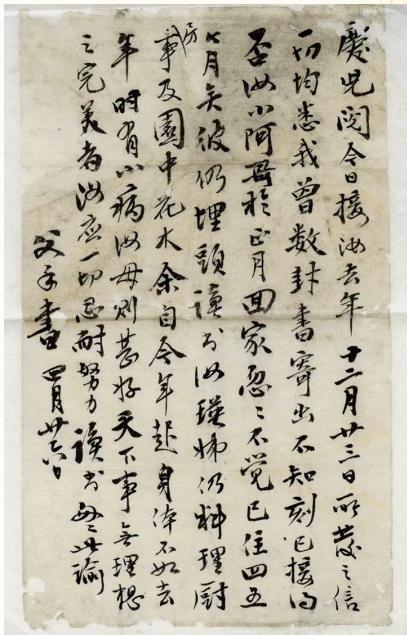 慶児閱今日接汝去年十二月廿三日所發之信
一切均悉我曾數封書寄出不知刻已接得
否汝小阿哥於正月回家忽忽不覺已住四五
個月矣彼仍埋頭讀書汝瑛姊仍料理厨房
事及園中花木余自今年起身体不如去
年時有小病汝母則甚好天下事無理想
之完美者汝應一切忍耐努力讀書 此諭
父手書 四月廿六日